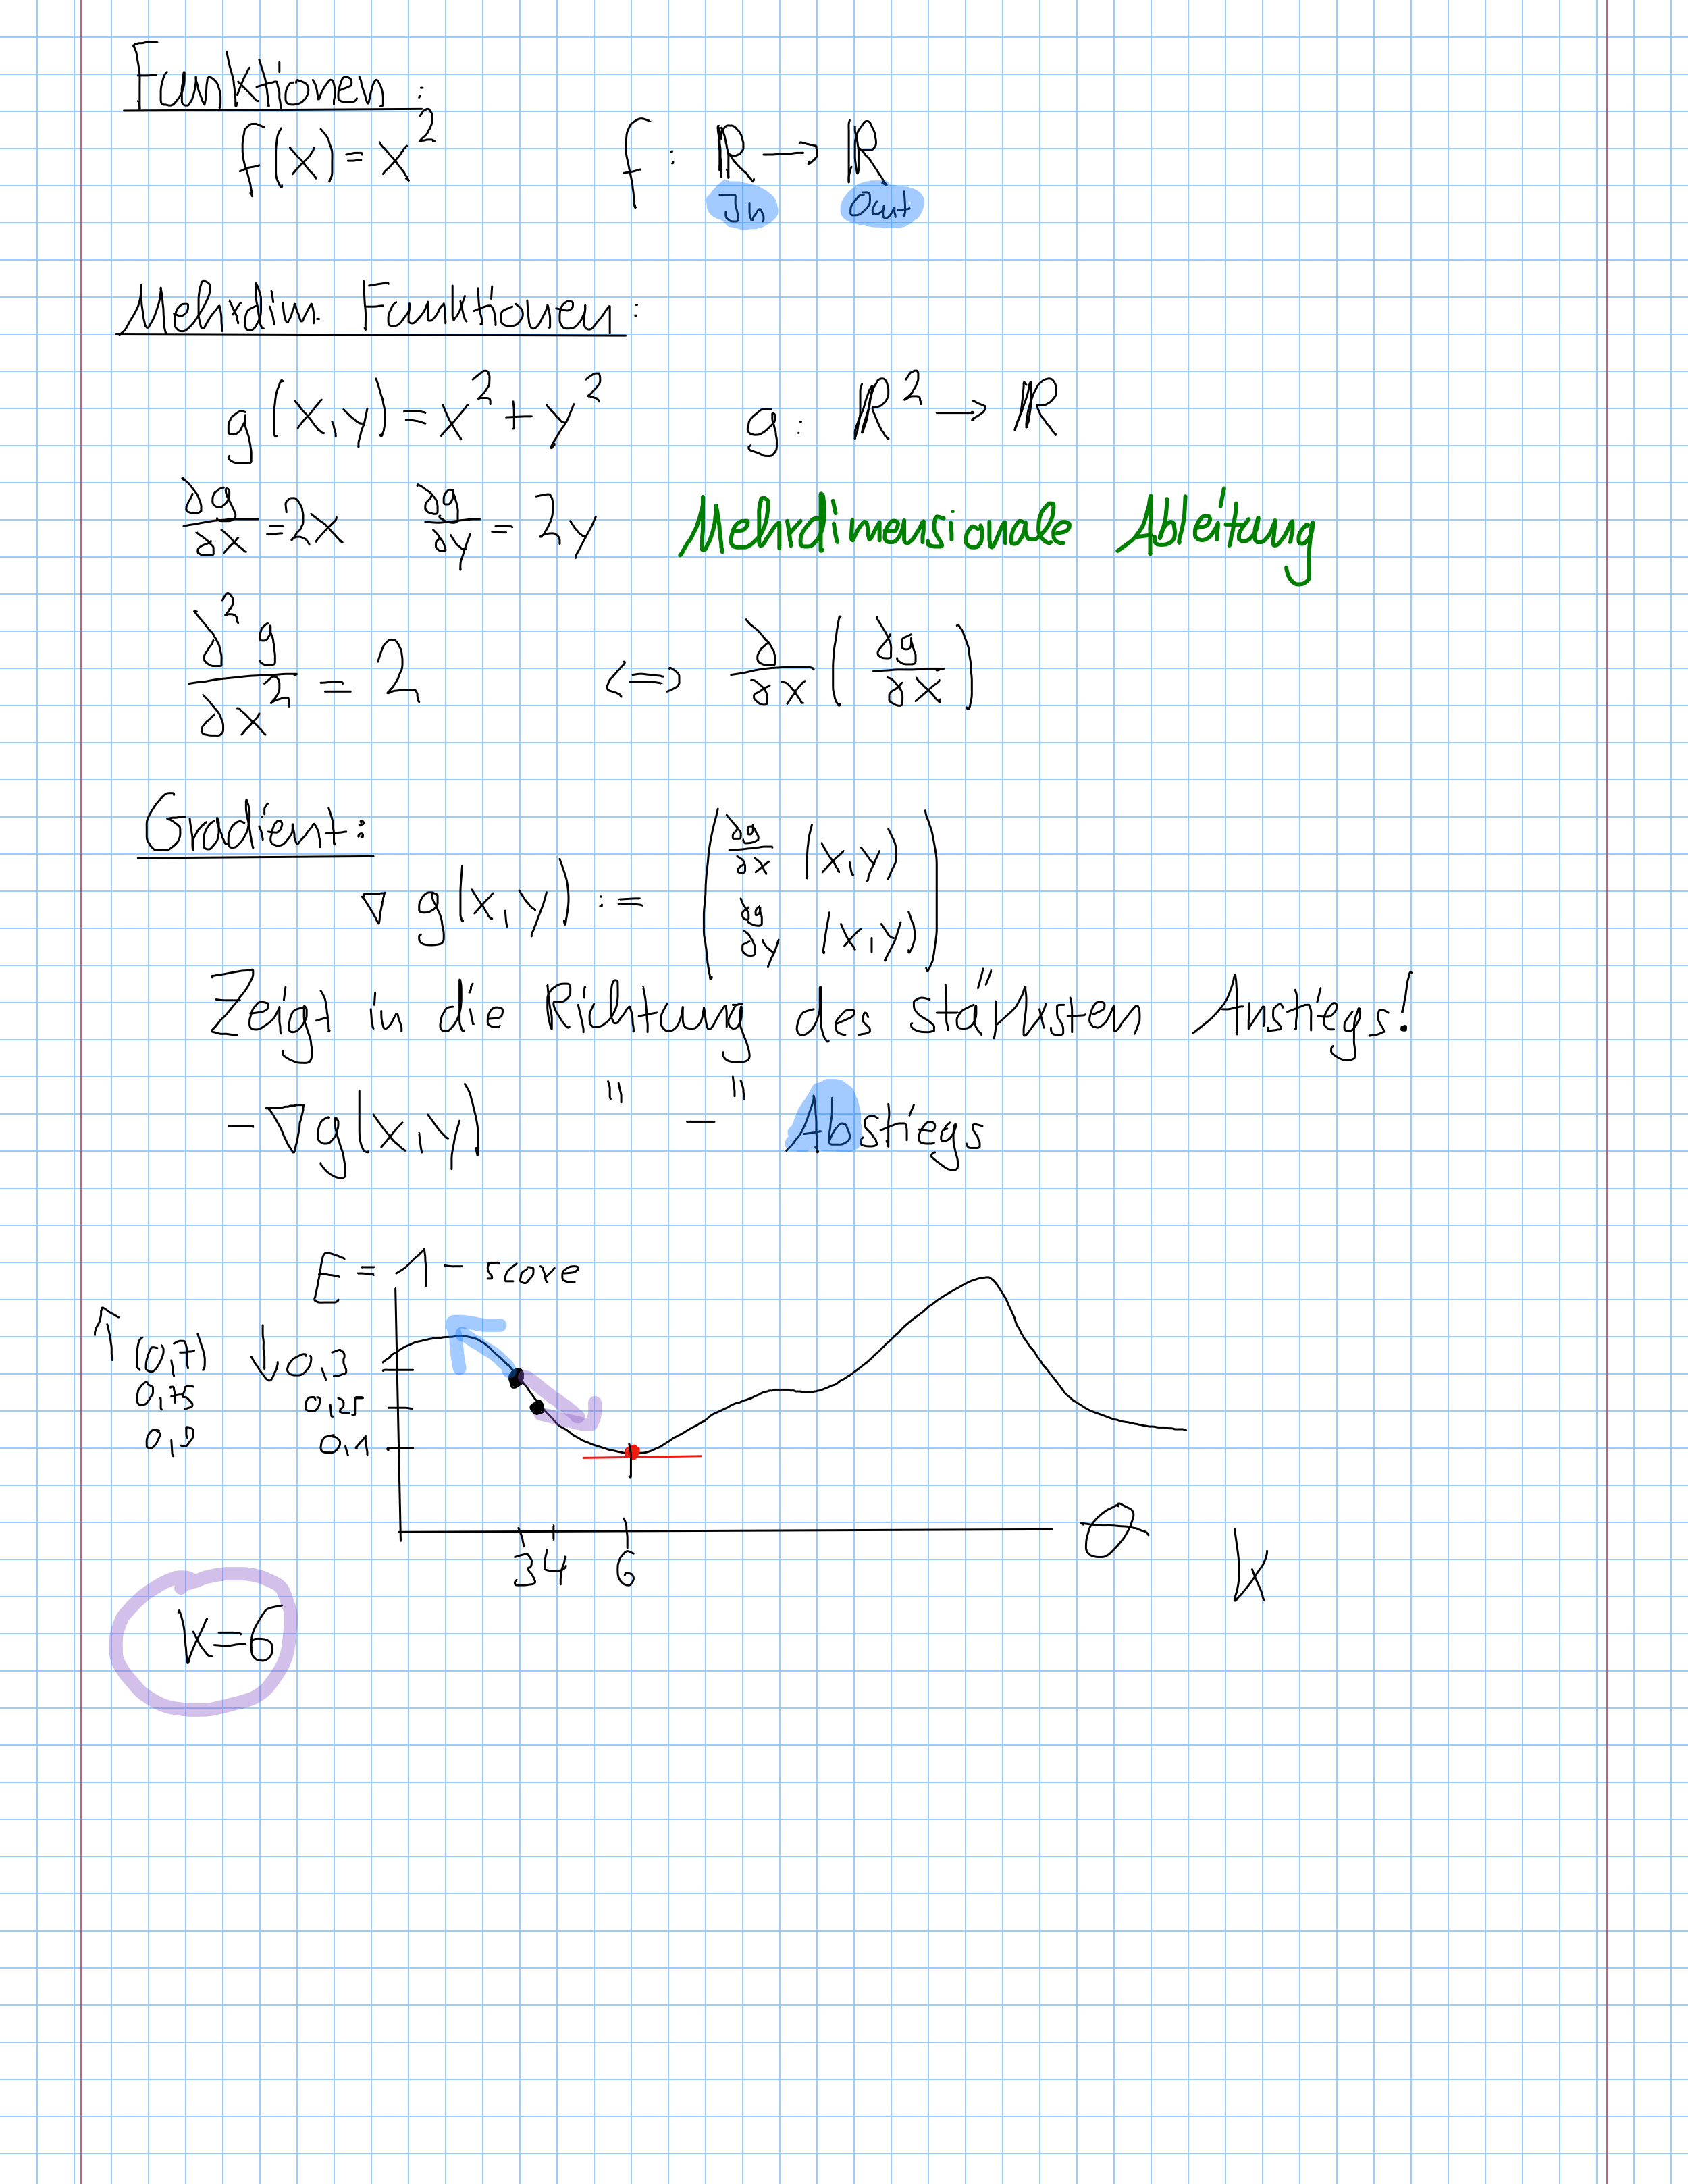 Funktionen:
f(x) = x² f: ℝ → ℝ
In Out
Mehrdim. Funktionen:
g(x,y) = x² + y² g: ℝ² → ℝ
∂g/∂x = 2x ∂g/∂y = 2y Mehrdimensionale Ableitung
∂²g/∂x² = 2 <=> ∂/∂x (∂g/∂x)
Gradient:
∇ g(x,y) := (∂g/∂x (x,y)
∂g/∂y (x,y))
Zeigt in die Richtung des stärksten Anstiegs!
-∇g(x,y) " - " Abstiegs
E = 1 - score
↑ (0,7) ↓ 0,3
0,75 0,25
0,9 0,1
3 4 6 θ k
k=6